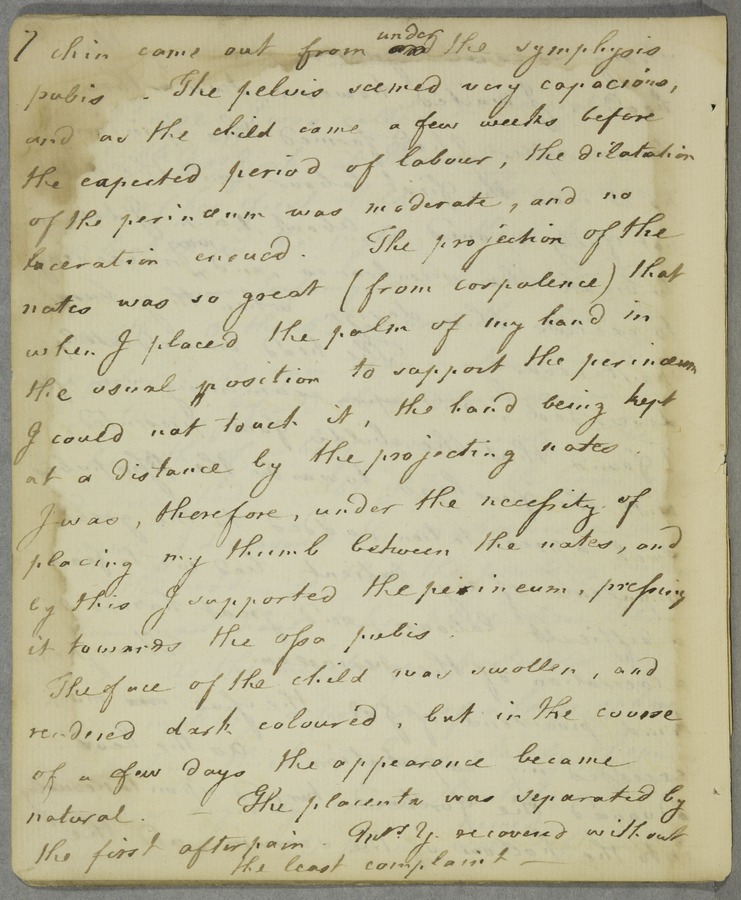 7 chin came out from under the symphysis
pubis . The pelvis seemed very capacious,
and as the child came a few weeks before
the expected period of labour, the dilatation
of the perinæum was moderate, and no
laceration ensued. The projection of the
nates was so great (from corpulence) that
when I placed the palm of my hand in
the usual position to support the perinæum
I could not touch it, the hand being kept
at a distance by the projecting nates.
I was, therefore, under the necessity of
placing my thumb between the nates, and
by this I supported the perineum, pressing
it towards the ossa pubis.
The face of the child was swollen, and
rendered dark coloured, but in the course
of a few days the appearance became
natural. — The placenta was separated by
the first afterpain. Mrs. Y. recovered without
the least complaint —